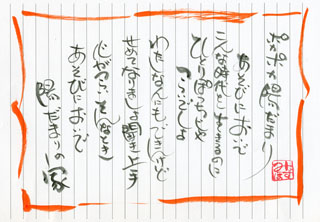 ポカポカ陽だまり
あそびにおいで
こんな時代を生きるのに
ひとりぼっちじゃ
つらいでしょ
わたしなんにもできないけど
せめてなりましょ聞き上手
そんなとき
あそびにおいで
陽だまりの家